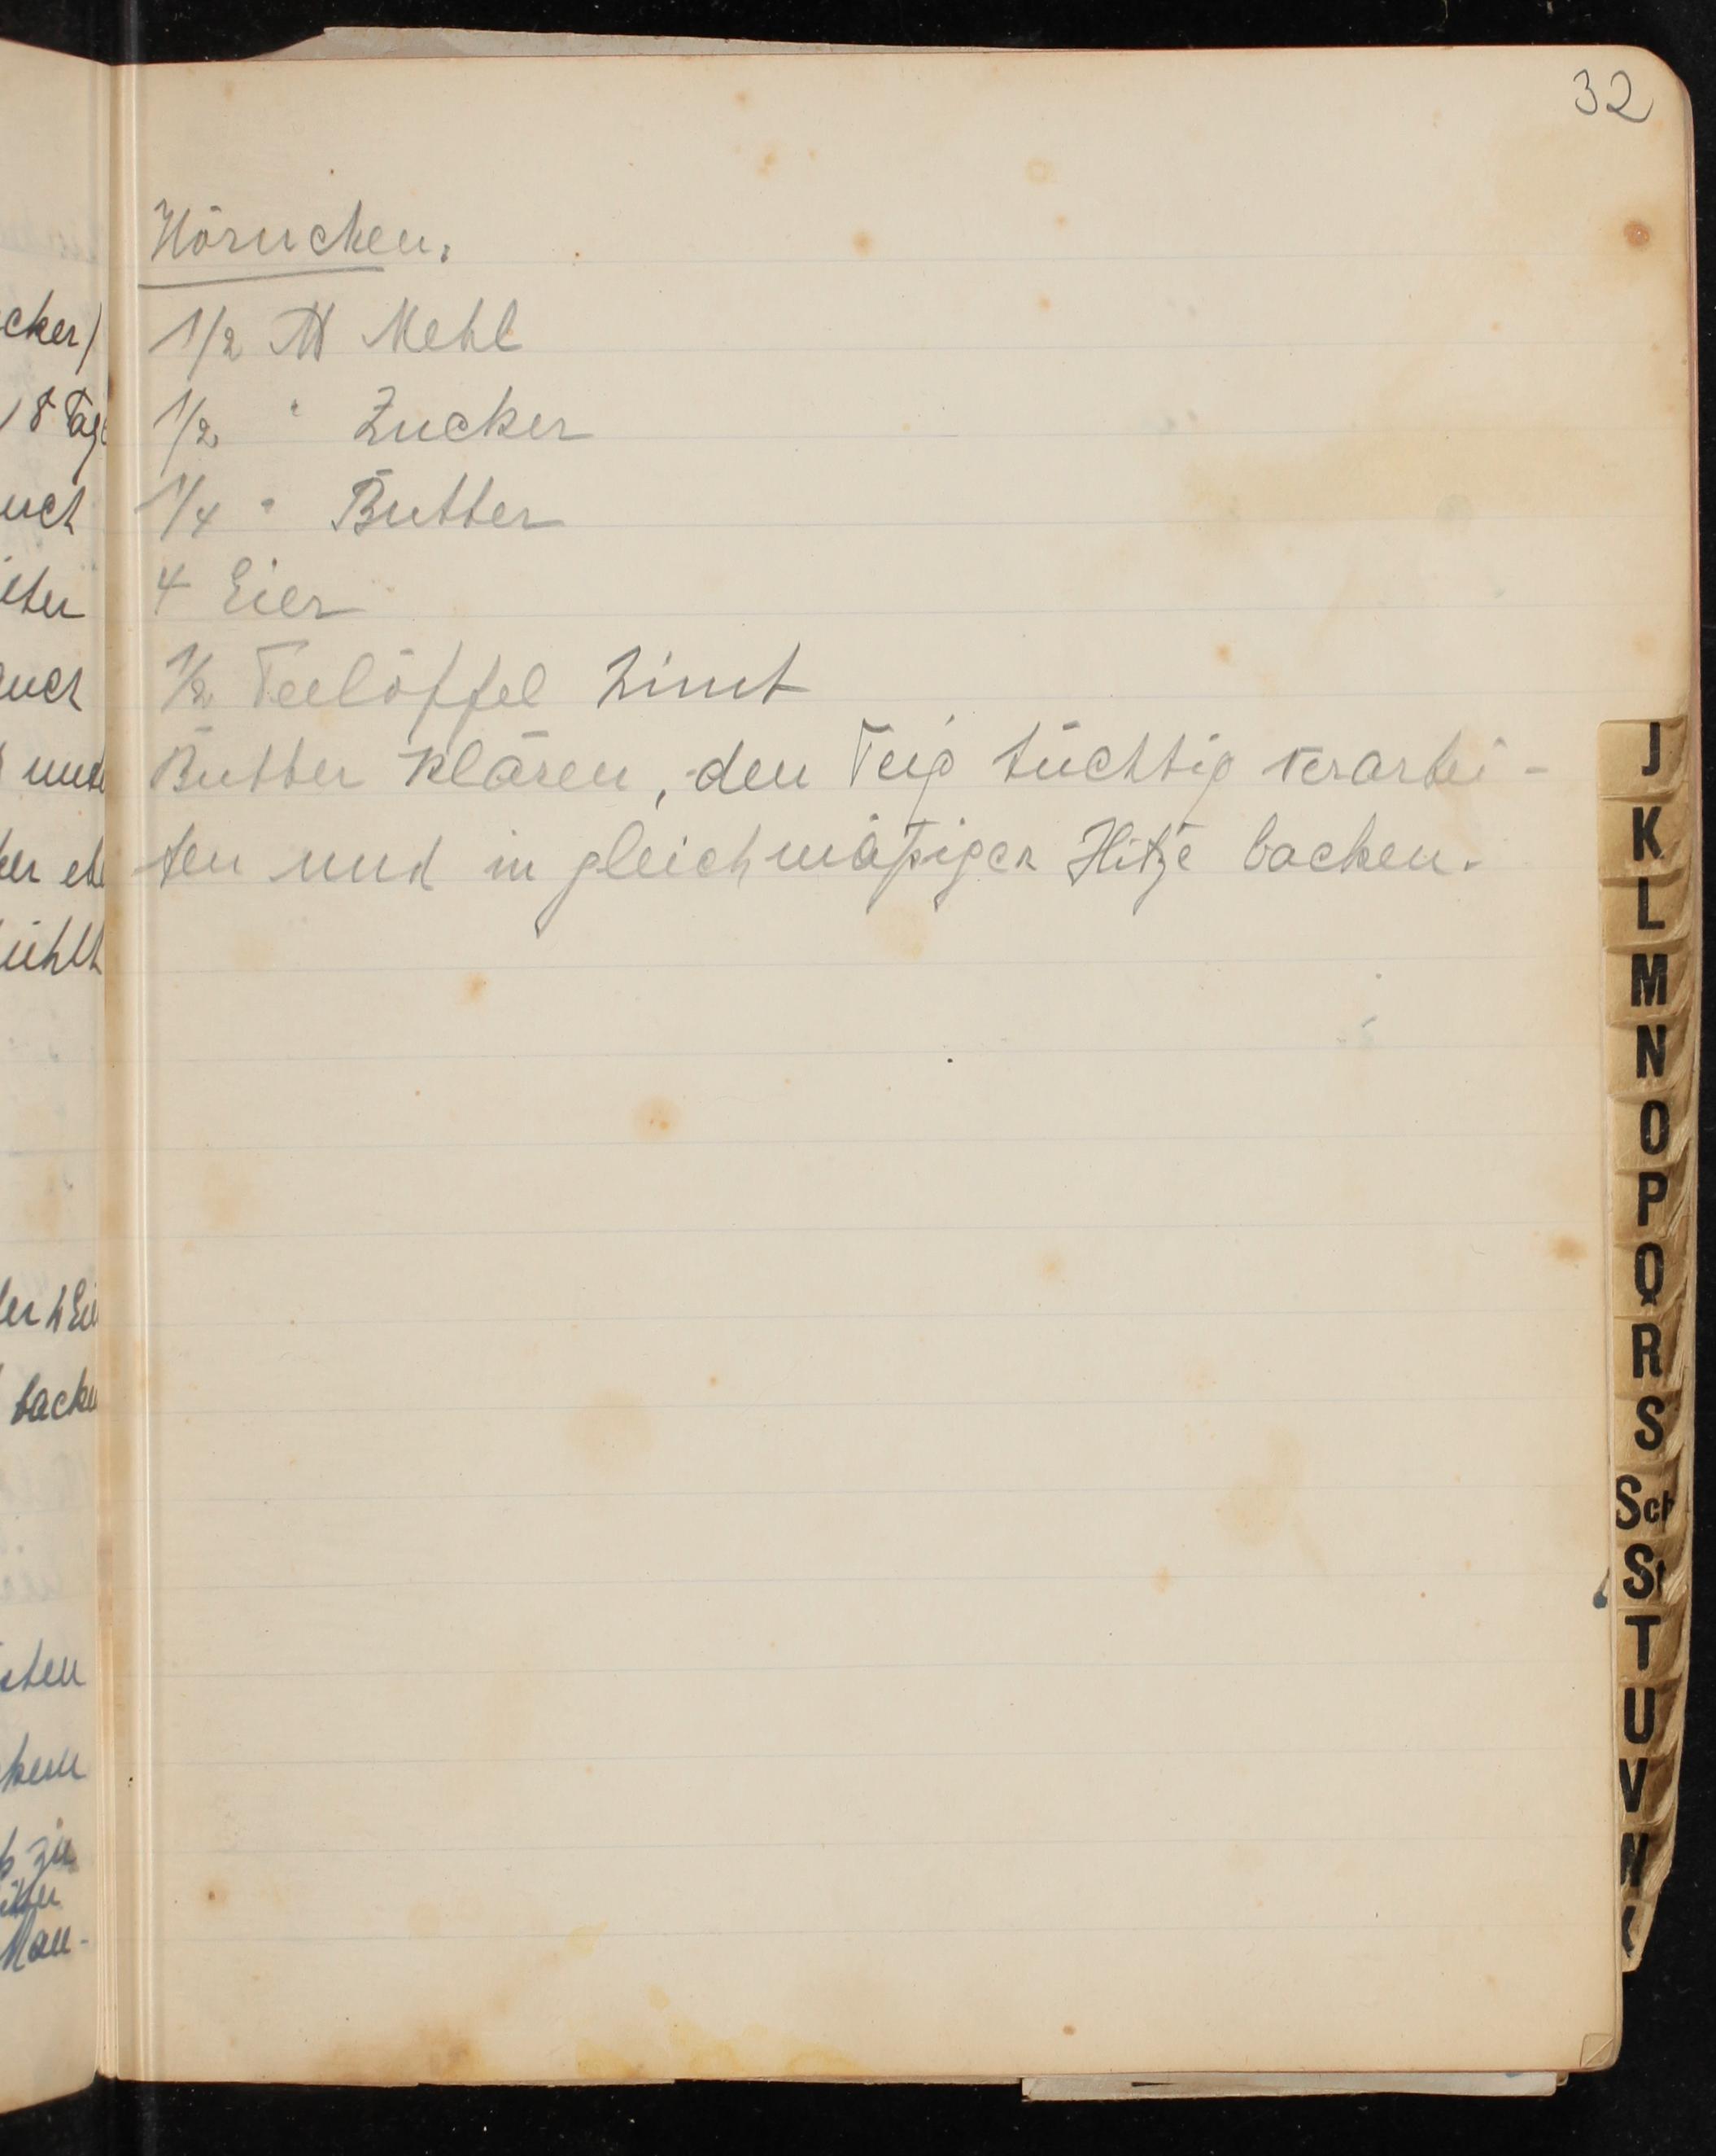 32
Hörnchen.
1/2 ℔ Mehl
1/2 " Zucker
1/4 " Butter
4 Eier
1/2 Teelöffel Zimt
Butter klären, den Teig tüchtig verarbei-
ten und in gleichmäßiger Hitze backen.
cker)
8 Tage
uch
und
backen
kem
zu
Man-
J
K
L
M
N
O
P
Q
R
S
Sch
St
T
U
V
W